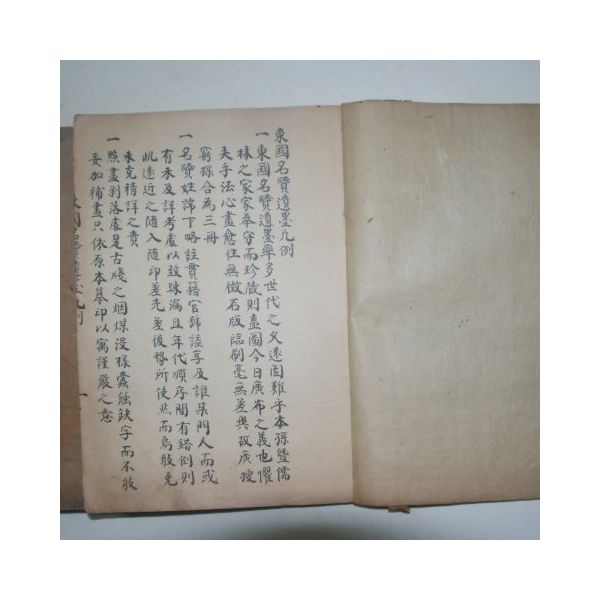 東國名賢遺墨凡例
一東國名賢遺墨率多世代之久遠固難乎本孫曁儒
林之家家奉守而珍藏則盡圖今日廣布之義也懼
夫手法心畫愈往無徵石版臨刷毫無差異故廣搜
窮採合為三冊
一名賢姓諱下略註貫籍官號諡享及誰某門人而或
有未及詳考處以致疎漏且年代順序間有錯倒則
此遠近之隨入隨印差先差後勢所使然而烏敢免
未充精詳之責
一點畫剥落處是古牋之烟煤没樣蠹蝕缺字而不敢
妄加補畫只依原本摹印以寓謹嚴之意
東國名賢遺墨凡例
一